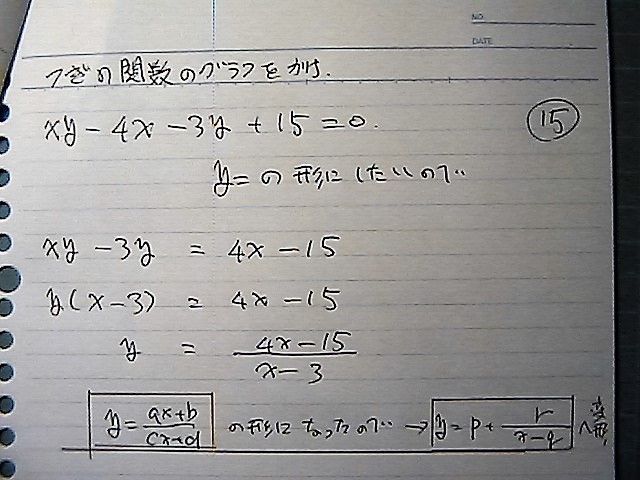 NO.
DATE
つぎの関数のグラフをかけ.
xy-4x-3y+15=0.
15
y=の形にしたいので
xy-3y = 4x-15
y(x-3) = 4x-15
y = \frac{4x-15}{x-3}
y=\frac{ax+b}{cx+d} の形になったので → y=p+\frac{r}{x-q} へ変形